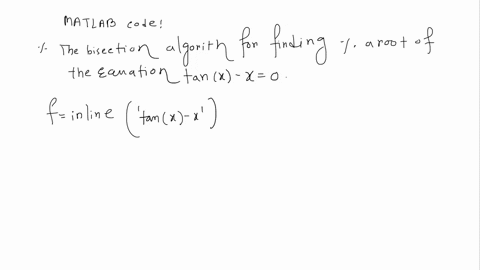 MATLAB code!
%. The bisection algorith for finding %. a root of
the equation tan(x) - x = 0.
f = inline ('tan(x) - x')